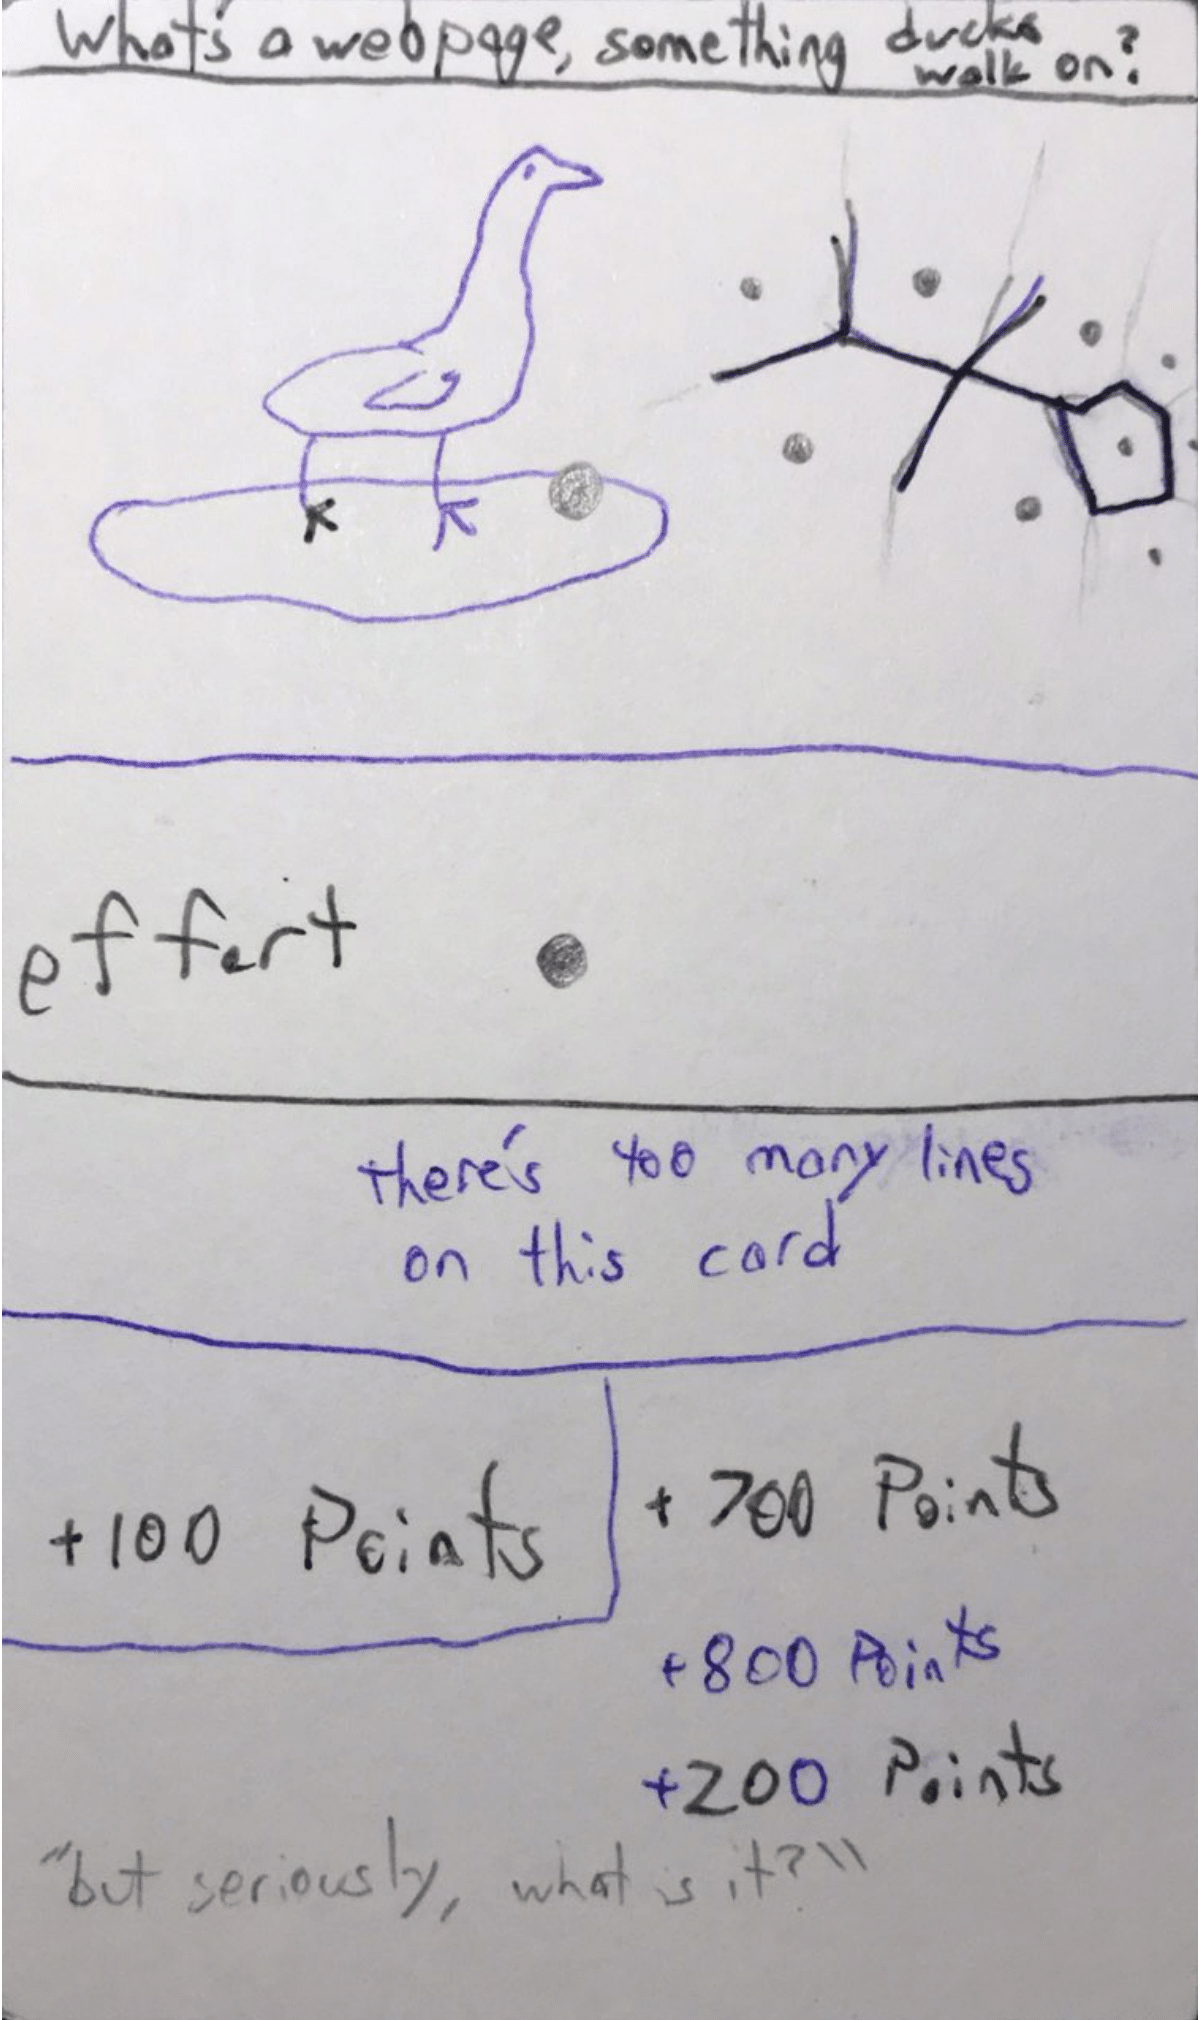 What's a webpage, something ducks
walk on?
effort
there's too many lines
on this card
+100 Points
+700 Points
+800 Points
+200 Points
"but seriously, what is it?"